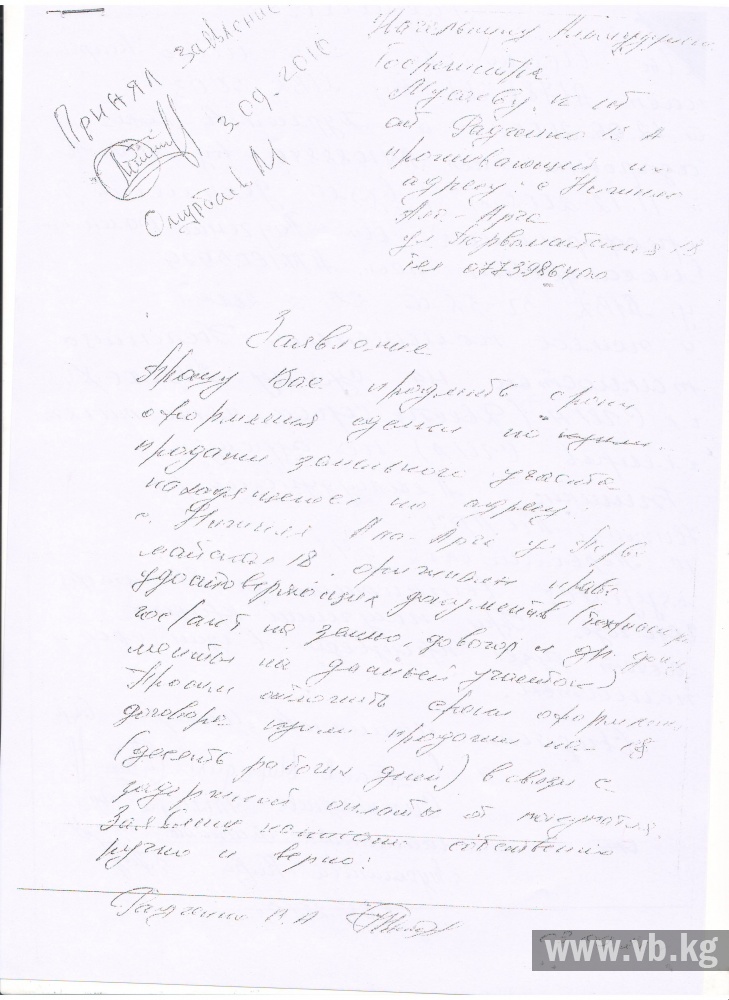 Принял заявление
3.09.2010
Омурбаев М
Начальнику
Госрегистра
Мусаеву К
от Радченко В А
проживающий по
адресу: с Нижняя
Ала-Арча
ул Первомайская 18
тел 0773986400
Заявление
Прошу Вас продлить сроки
оформления сделки по купли
продажи земельного участка
находящегося по адресу:
с. Нижняя Ала-Арча ул Перво
майская 18 право
удостоверяющих документов (техпаспорт
госакт на землю, договор и др. доку
менты на данный участок)
Просим отложить сроки оформления
договора купли-продажи на
(десять рабочих дней) в связи с
задержкой оплаты от покупателя.
Заявление написано собственно
ручно и верно:
Радченко В.А
www.vb.kg